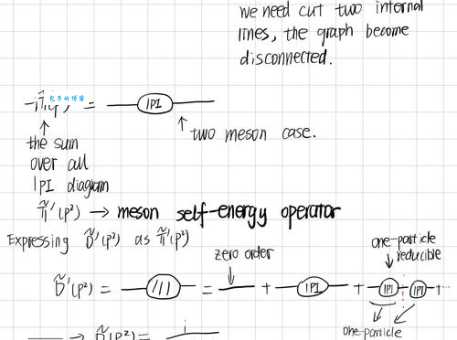 we need cut two internal
lines, the graph become
disconnected.
= 1PI
two meson case.
the sum
over all
1PI diagram
π̃'(p²) → meson self-energy operator
Expressing D̃'(p²) as π̃'(p²)
zero order
one-particle
reducible
D̃'(p²) = = + 1PI + 1PI 1PI + ...
one-particle
→ D̃(p²) = i